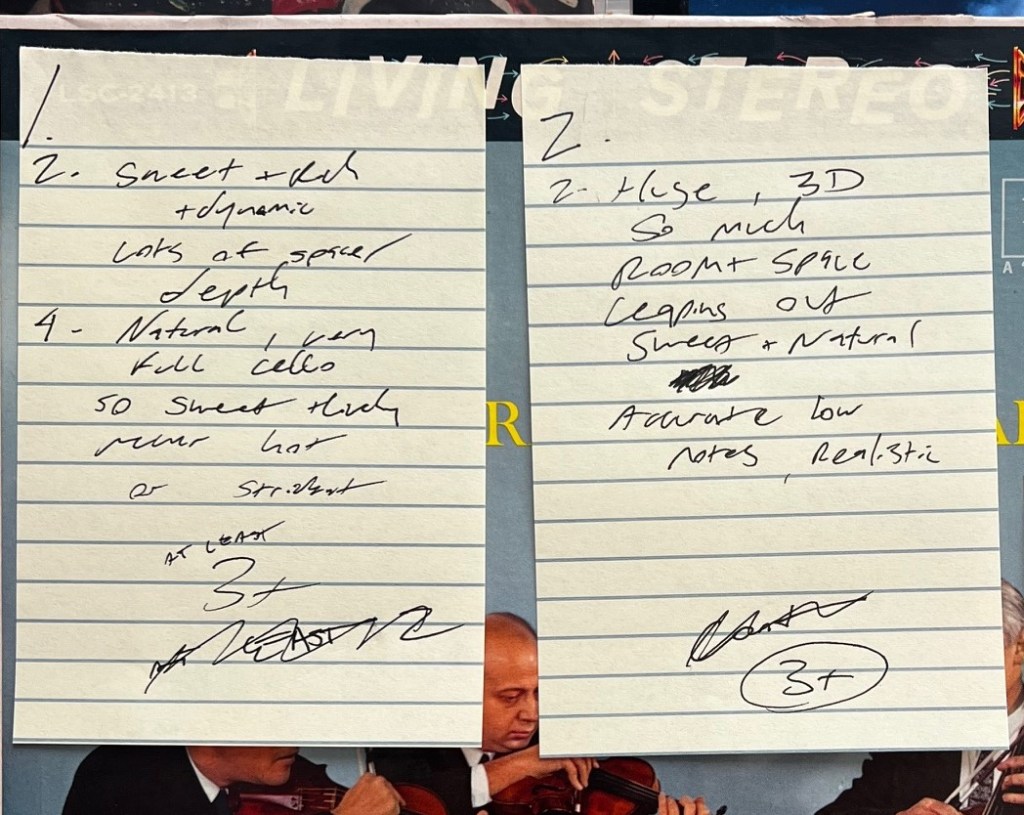 LSC-2413 LIVING STEREO
1.
2. Sweet + Rich
+ dynamic
Lots of space/
depth
4 - Natural, very
full cello
so sweet + lively
never hot
or strident
AT LEAST
3+
LEAST
2.
2 - Huge, 3D
So much
Room + Space
Leaping out
Sweet + Natural
Accurate low
notes, Realistic
3+
R